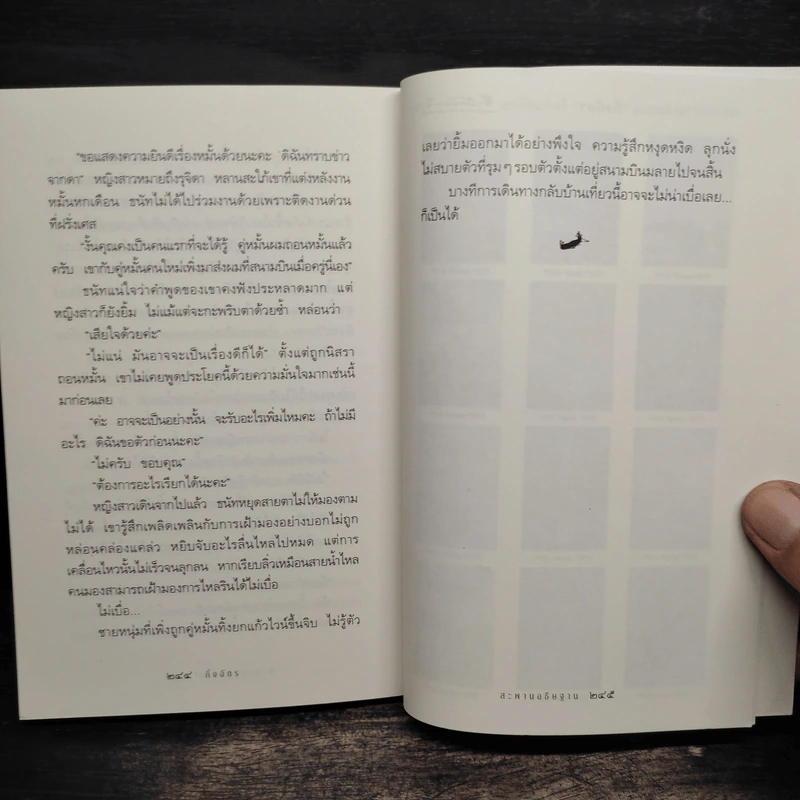 "ขอแสดงความยินดีเรื่องหมั้นด้วยนะคะ ดิฉันทราบข่าว
จากดา" หญิงสาวหมายถึงรุจิดา หลานสะใภ้เขาที่แต่งหลังงาน
หมั้นหกเดือน ธนัทไม่ได้ไปร่วมงานด้วยเพราะติดงานด่วน
ที่ฝรั่งเศส
"งั้นคุณคงเป็นคนแรกที่จะได้รู้ คู่หมั้นผมถอนหมั้นแล้ว
ครับ เขากับคู่หมั้นคนใหม่เพิ่งมาส่งผมที่สนามบินเมื่อครู่นี่เอง"
ธนัทแน่ใจว่าคำพูดของเขาคงฟังประหลาดมาก แต่
หญิงสาวก็ยังยิ้ม ไม่แม้แต่จะกะพริบตาด้วยซ้ำ หล่อนว่า
"เสียใจด้วยค่ะ"
"ไม่แน่ มันอาจจะเป็นเรื่องดีก็ได้" ตั้งแต่ถูกนิสรา
ถอนหมั้น เขาไม่เคยพูดประโยคนี้ด้วยความมั่นใจมากเช่นนี้
มาก่อนเลย
"ค่ะ อาจจะเป็นอย่างนั้น จะรับอะไรเพิ่มไหมคะ ถ้าไม่มี
อะไร ดิฉันขอตัวก่อนนะคะ"
"ไม่ครับ ขอบคุณ"
"ต้องการอะไรเรียกได้นะคะ"
หญิงสาวเดินจากไปแล้ว ธนัทหยุดสายตาไม่ให้มองตาม
ไม่ได้ เขารู้สึกเพลิดเพลินกับการเฝ้ามองอย่างบอกไม่ถูก
หล่อนคล่องแคล่ว หยิบจับอะไรลื่นไหลไปหมด แต่การ
เคลื่อนไหวนั้นไม่เร็วจนลุกลน หากเรียบลิ่วเหมือนสายน้ำไหล
คนมองสามารถเฝ้ามองการไหลรินได้ไม่เบื่อ
ไม่เบื่อ...
ชายหนุ่มที่เพิ่งถูกคู่หมั้นทิ้งยกแก้วไวน์ขึ้นจิบ ไม่รู้ตัว
๒๔๔ กิ่งฉัตร
เลยว่ายิ้มออกมาได้อย่างพึงใจ ความรู้สึกหงุดหงิด ลุกนั่ง
ไม่สบายตัวที่รุมๆ รอบตัวตั้งแต่อยู่สนามบินมลายไปจนสิ้น
บางทีการเดินทางกลับบ้านเที่ยวนี้อาจจะไม่น่าเบื่อเลย...
ก็เป็นได้
สะพานอธิษฐาน ๒๔๕